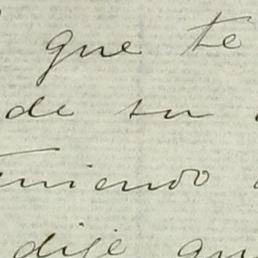 que te
de su
teniendo
dije que